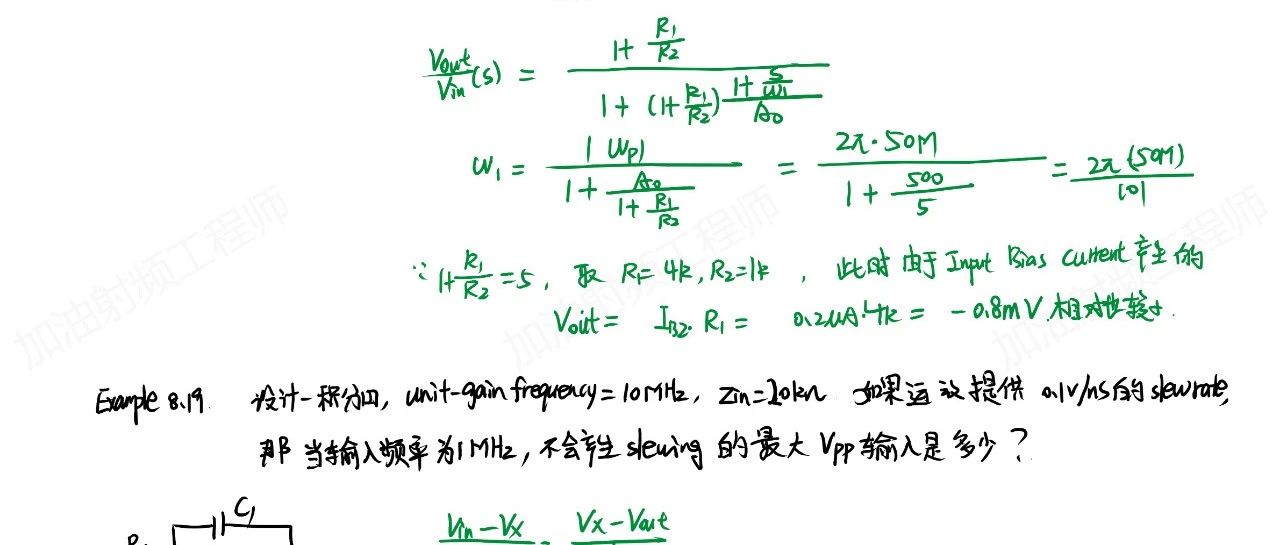 Vout/Vin (s) = (1 + R1/R2) / (1 + (1+R1/R2) (1 + s/ω1)/A0)
ω1 = |ωp| / (1 + A0/(1 + R1/R2)) = 2π·50M / (1 + 500/5) = 2π(50M)/101
∵ 1+R1/R2 = 5, 取 R1= 4k, R2=1k , 此时由于Input Bias current产生的
Vout = IB2·R1 = 0.2uA·4k = -0.8mV.相对比较小.
Example 8.19. 设计一积分四, unit-gain frequency = 10MHz, Zin=20kΩ 如果运放提供 0.1V/ns的slew rate,
那当输入频率为1MHz, 不会产生slewing的最大Vpp输入是多少?
C1
Vin-Vx Vx-Vout
加油射频工程师
加油射频工程师
加油射频工程师